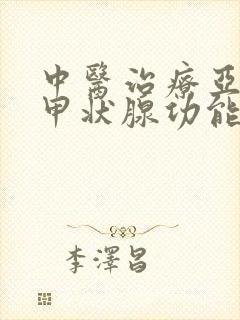 中醫治療亞
甲狀腺功能
李澤昌